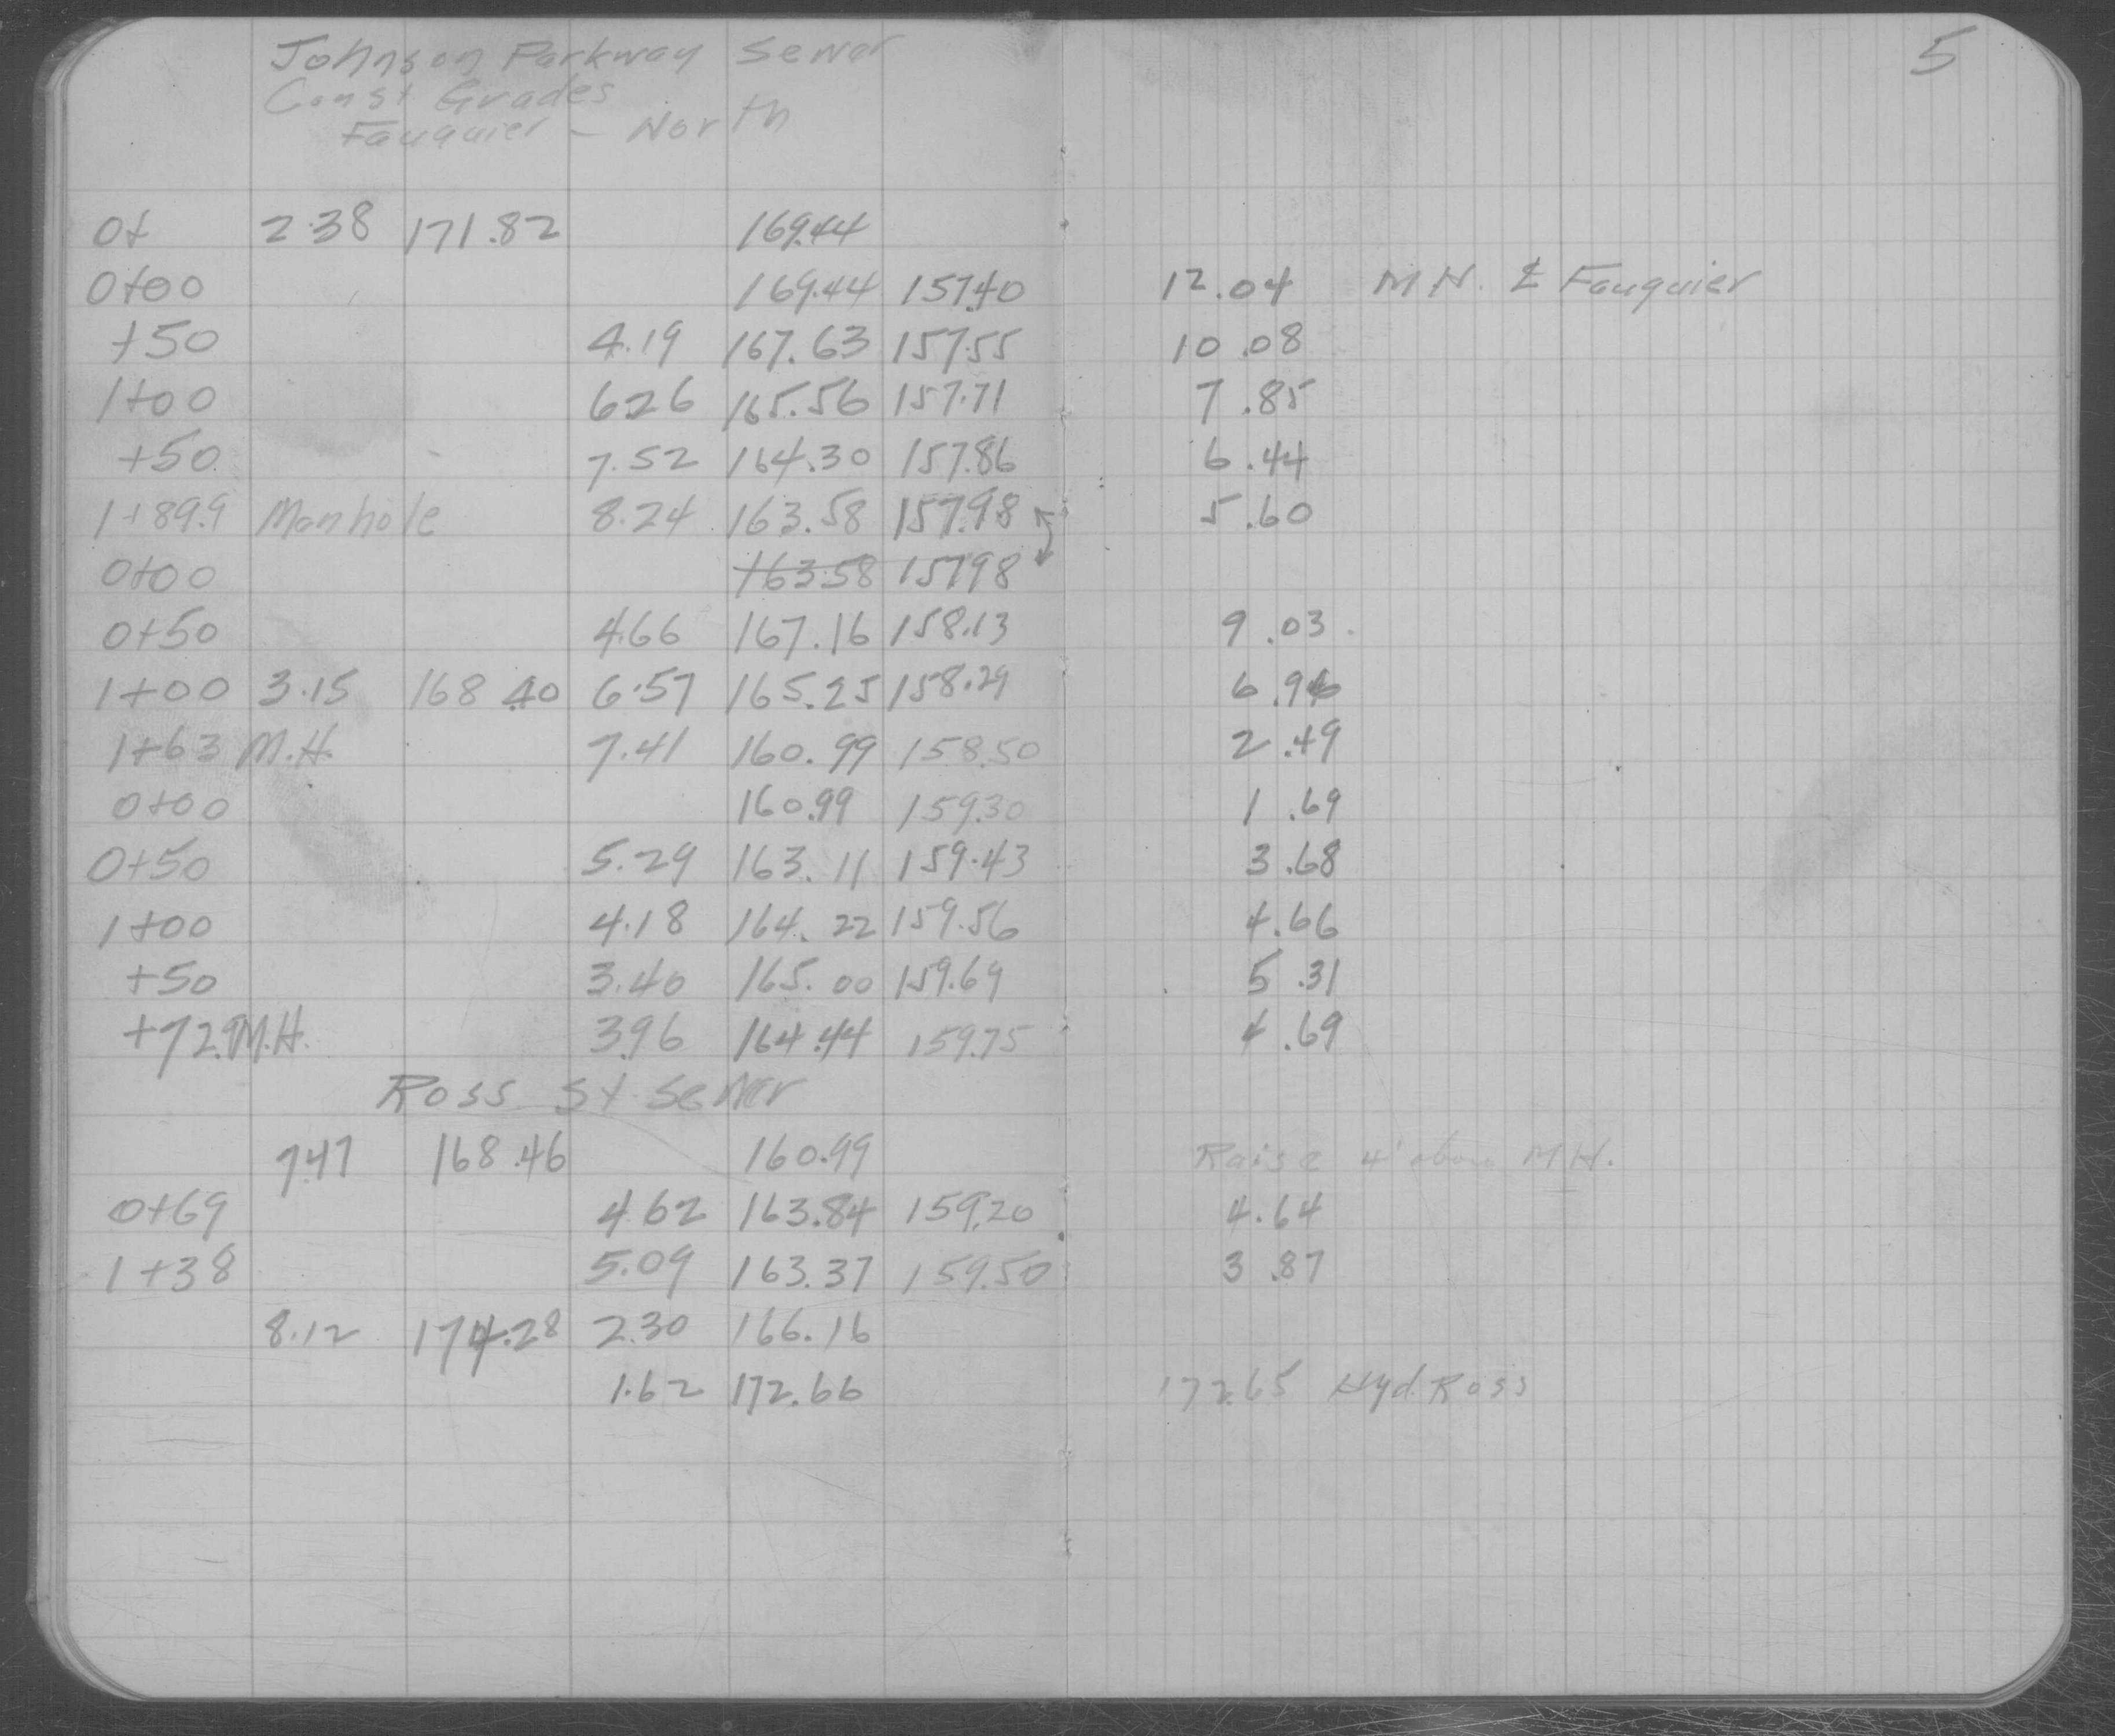 5
Johnson Parkway Sewer
Const Grades
Fauquier - North
0+ 2.38 171.82 169.44
0+00 169.44 157.40 12.04 M H. ℄ Fauquier
+50 4.19 167.63 157.55 10.08
1+00 6.26 165.56 157.71 7.85
+50 7.52 164.30 157.86 6.44
1+89.9 Manhole 8.24 163.58 157.98 5.60
0+00 163.58 157.98
0+50 4.66 167.16 158.13 9.03
1+00 3.15 168.40 6.57 165.25 158.29 6.96
1+63 M.H. 7.41 160.99 158.50 2.49
0+00 160.99 159.30 1.69
0+50 5.29 163.11 159.43 3.68
1+00 4.18 164.22 159.56 4.66
+50 3.40 165.00 159.69 5.31
+72.9 M.H. 3.96 164.44 159.75 4.69
Ross St. Sewer
7.47 168.46 160.99 Raise 4' above M.H.
0+69 4.62 163.84 159.20 4.64
1+38 5.09 163.37 159.50 3.87
8.12 174.28 2.30 166.16
1.62 172.66 172.65 Hyd. Ross